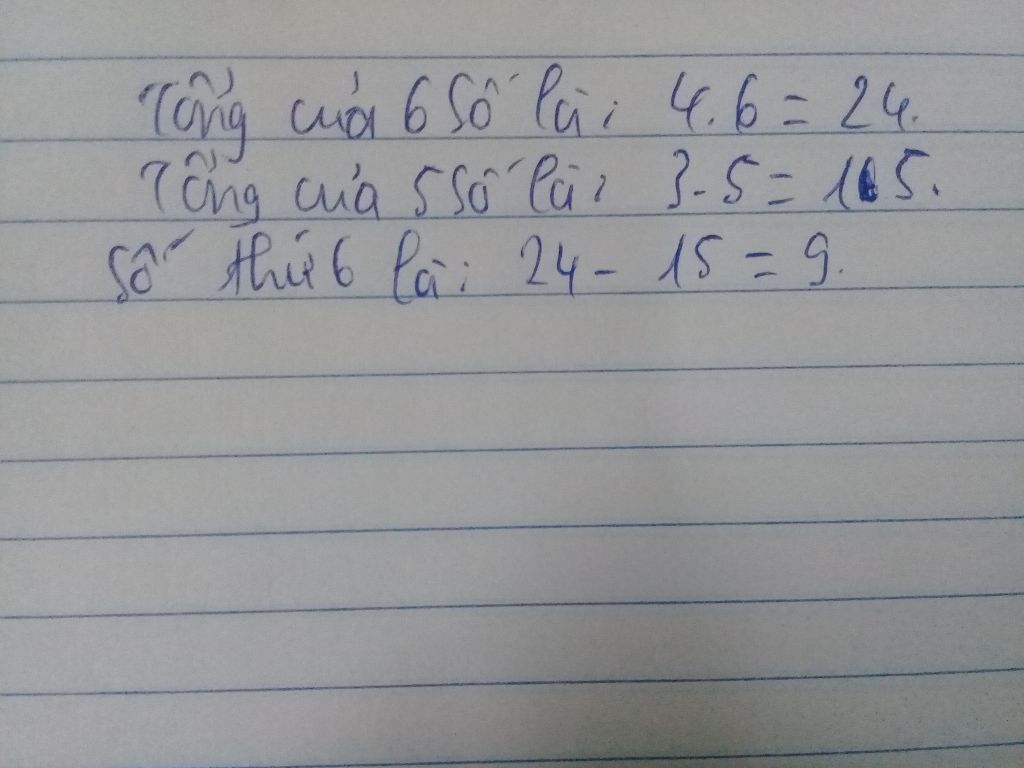 Tổng của 6 số là: 4.6 = 24.
Tổng của 5 số là: 3.5 = 15.
Số thứ 6 là: 24 - 15 = 9.